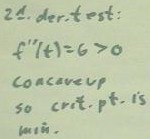 2d. der. test:
f''(t)=6>0
concave up
so crit. pt. is
min.